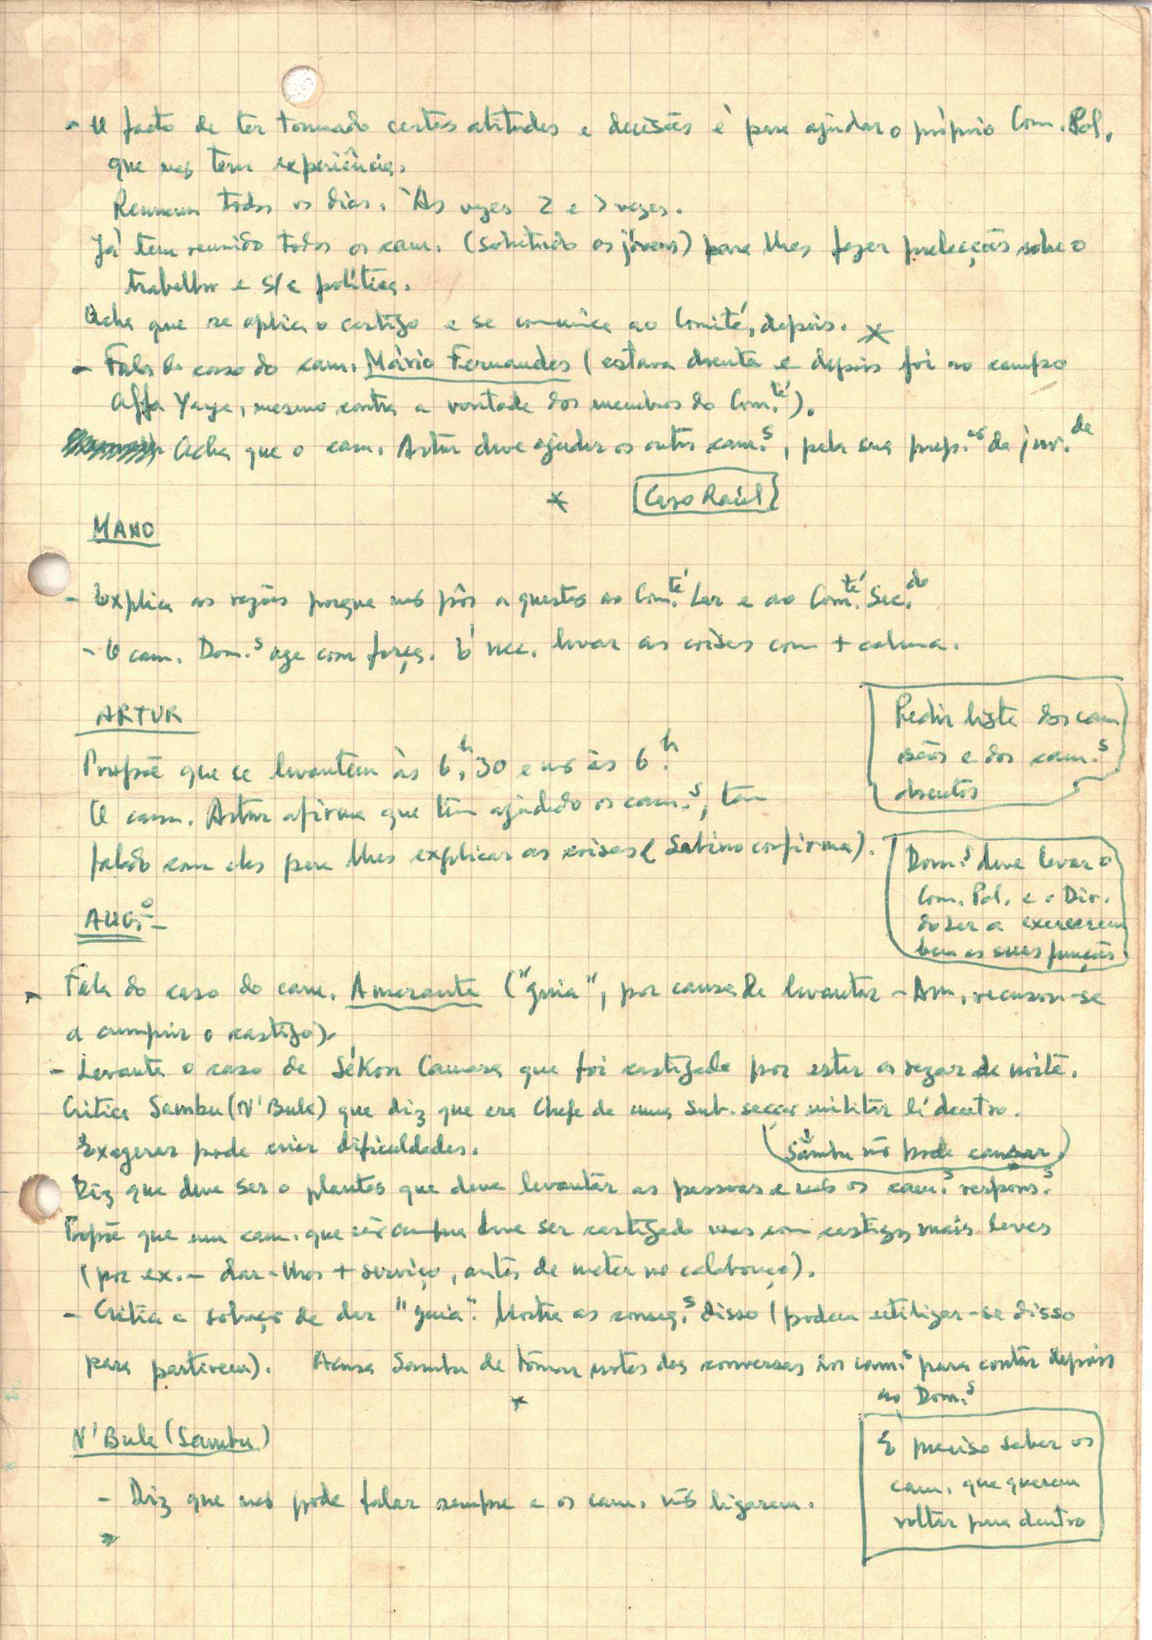 - O facto de ter tomado certas atitudes e decisões é para ajudar o próprio Com. Pol.
que não tem experiência.
Reunem todos os dias. Às vezes 2 e 3 vezes.
Já tem reunido todos os cam. (sobretudo os jóvens) para lhes fazer prelecções sobre o
trabalho e s/ a política.
Acha que se aplica o castigo e se comunica ao Comité, depois. x
- Fala do caso do cam. Mário Fernandes (estava doente e depois foi ao campo
Alfa Yaya, mesmo contra a vontade dos membros do Com.té).
Acha que o cam. Artur deve ajudar os outros cam.s, pela sua prep.ão da juv.de
x
Caso Raúl
MANO
- Explica as razões porque não pôs a questão ao Com.té Lar e ao Com.té Sec.do
- O cam. Dom.s age com força. É nec. levar as coisas com + calma.
ARTUR
Propõe que se levantem às 6,h30 e não às 6.h
O cam. Artur afirma que tem ajudado os cam.s, tem
falado com eles para lhes explicar as coisas (Sabino confirma).
Pedir lista dos cam
sãos e dos cam.s
doentes
Dom.s deve levar o
Com. Pol. e o Dir.
do Lar a exercerem
bem as suas funções.
AUG.o -
- Fala do caso do cam. Amarante ("guia", por causa de levantar - Am. recusou-se
a cumprir o castigo).
- Levanta o caso de Sékou Camara que foi castigado por estar a rezar de noite.
Critica Sambu (N'Bule) que diz que era Chefe de uma Sub-secção militar lá dentro.
Exagerar pode criar dificuldades.
(Sambu não pode cansar)
Diz que deve ser o plantão que deve levantar as pessoas e não os cam.s respons.s
Propõe que um cam. que não cumpra deve ser castigado mas com castigos mais leves
(por ex. - dar-lhes + serviço, antes de meter no calabouço).
- Critica a solução de dar "guia". Mostra as conseq.s disso (podem utilizar-se disso
para partirem). Acusa Sambu de tomar notas das conversas dos cam.s para contar depois
ao Dom.s
x
N'Bule (Sambu)
- Diz que não pode falar sempre e os cam. não ligarem.
É preciso saber os
cam. que querem
voltar para dentro